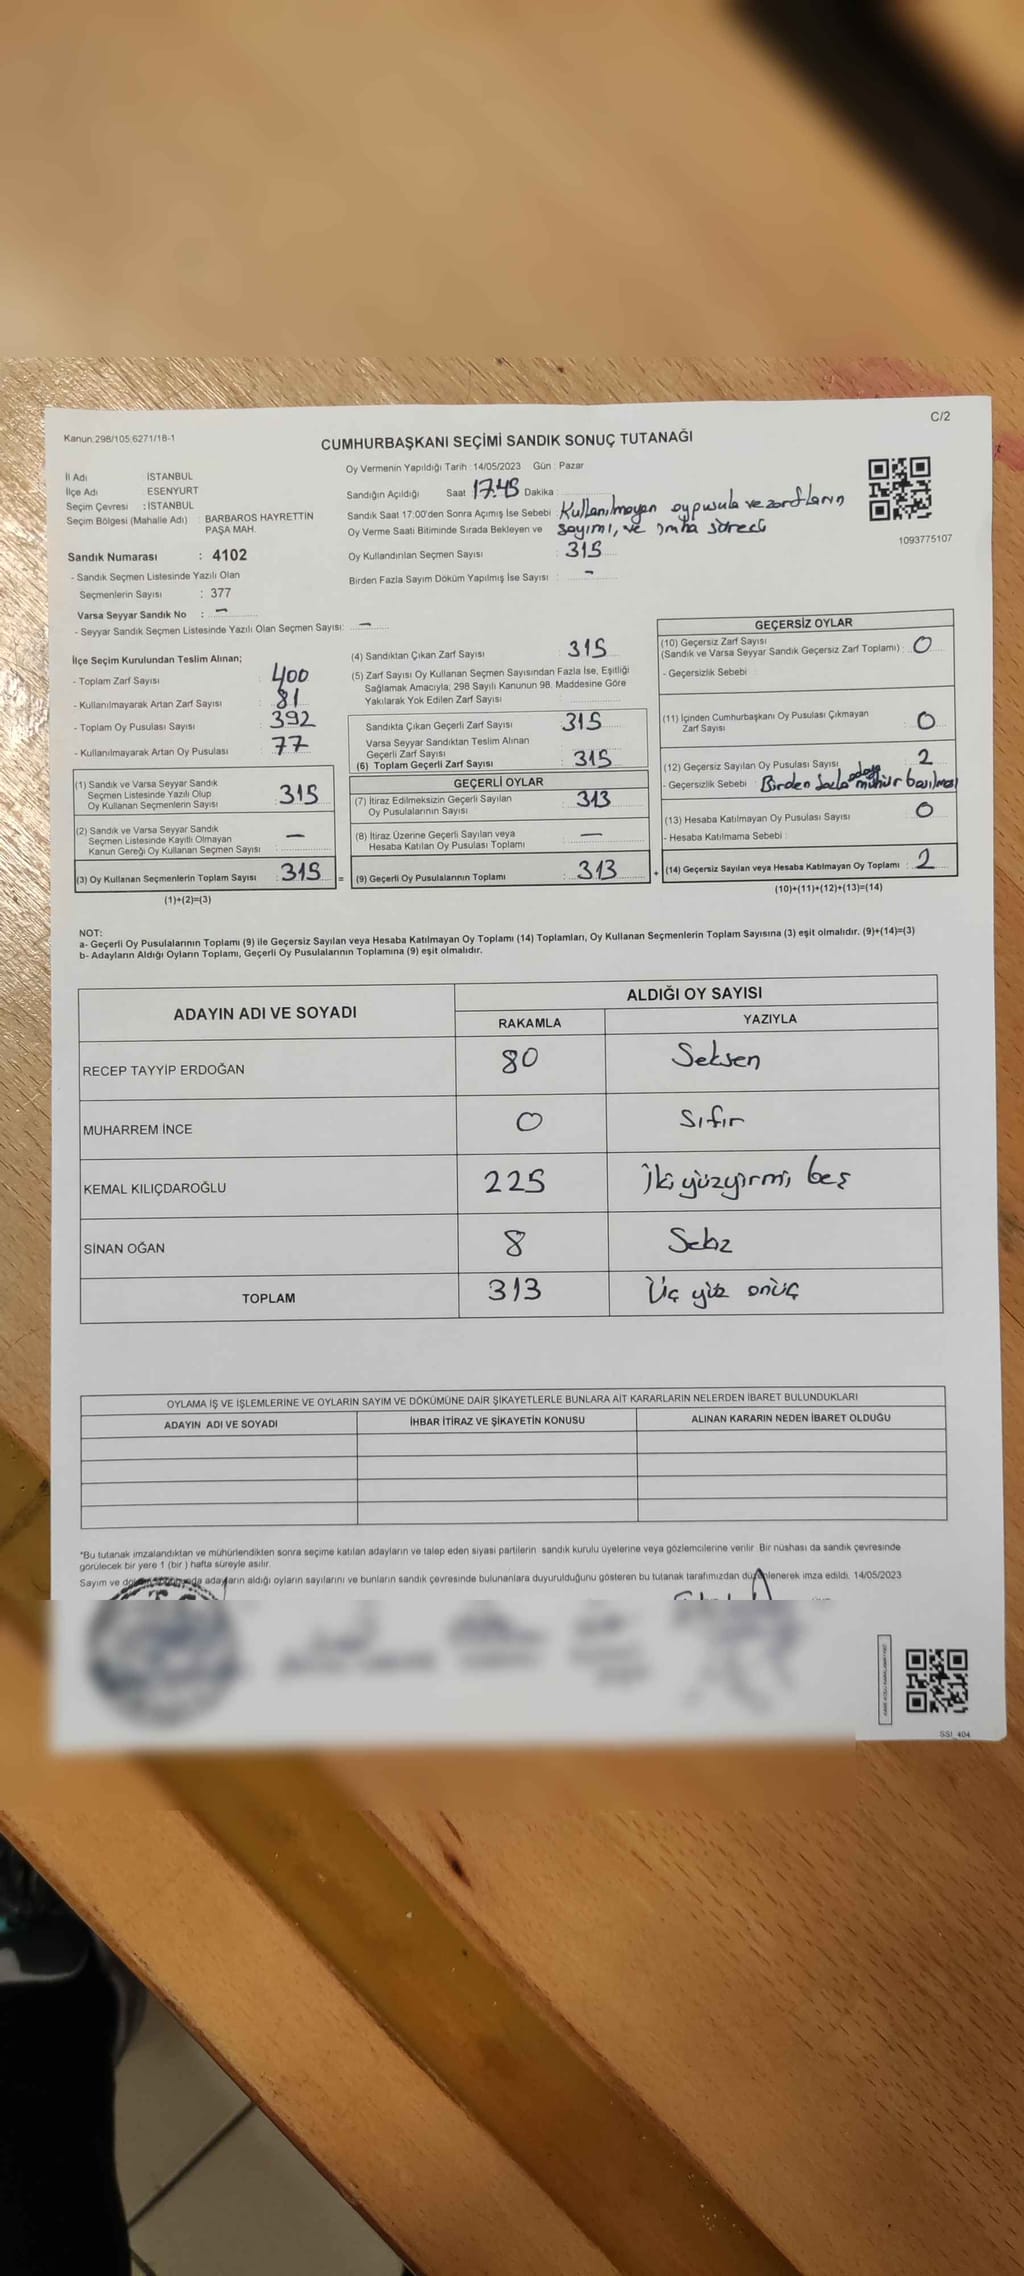 Kanun.298/105,6271/18-1
C/2
CUMHURBAŞKANI SEÇİMİ SANDIK SONUÇ TUTANAĞI
İl Adı İSTANBUL
İlçe Adı ESENYURT
Seçim Çevresi : İSTANBUL
Seçim Bölgesi (Mahalle Adı) : BARBAROS HAYRETTİN
PAŞA MAH
Sandık Numarası : 4102
- Sandık Seçmen Listesinde Yazılı Olan
Seçmenlerin Sayısı : 377
Varsa Seyyar Sandık No : -
- Seyyar Sandık Seçmen Listesinde Yazılı Olan Seçmen Sayısı: -
Oy Vermenin Yapıldığı Tarih : 14/05/2023 Gün : Pazar
Sandığın Açıldığı Saat 17.45 Dakika :
Sandık Saat 17:00'den Sonra Açımış İse Sebebi : Kullanılmayan oypusula ve zarfların
Oy Verme Saati Bitiminde Sırada Bekleyen ve sayımı, ve imha süreci
Oy Kullandırılan Seçmen Sayısı : 315
Birden Fazla Sayım Döküm Yapılmış İse Sayısı : -
1093775107
İlçe Seçim Kurulundan Teslim Alınan;
- Toplam Zarf Sayısı : 400
- Kullanılmayarak Artan Zarf Sayısı : 81
- Toplam Oy Pusulası Sayısı : 392
- Kullanılmayarak Artan Oy Pusulası : 77
(1) Sandık ve Varsa Seyyar Sandık
Seçmen Listesinde Yazılı Olup
Oy Kullanan Seçmenlerin Sayısı : 315
(2) Sandık ve Varsa Seyyar Sandık
Seçmen Listesinde Kayıtlı Olmayan
Kanun Gereği Oy Kullanan Seçmen Sayısı : -
(3) Oy Kullanan Seçmenlerin Toplam Sayısı : 315 =
(1)+(2)=(3)
(4) Sandıktan Çıkan Zarf Sayısı : 315
(5) Zarf Sayısı Oy Kullanan Seçmen Sayısından Fazla İse, Eşitliği
Sağlamak Amacıyla; 298 Sayılı Kanunun 98. Maddesine Göre
Yakılarak Yok Edilen Zarf Sayısı :
Sandıkta Çıkan Geçerli Zarf Sayısı : 315
Varsa Seyyar Sandıktan Teslim Alınan
Geçerli Zarf Sayısı
(6) Toplam Geçerli Zarf Sayısı : 315
GEÇERLİ OYLAR
(7) İtiraz Edilmeksizin Geçerli Sayılan
Oy Pusulalarının Sayısı : 313
(8) İtiraz Üzerine Geçerli Sayılan veya
Hesaba Katılan Oy Pusulası Toplamı : -
(9) Geçerli Oy Pusulalarının Toplamı : 313 +
GEÇERSİZ OYLAR
(10) Geçersiz Zarf Sayısı
(Sandık ve Varsa Seyyar Sandık Geçersiz Zarf Toplamı) : 0
- Geçersizlik Sebebi :
(11) İçinden Cumhurbaşkanı Oy Pusulası Çıkmayan
Zarf Sayısı : 0
(12) Geçersiz Sayılan Oy Pusulası Sayısı : 2
- Geçersizlik Sebebi : Birden fazla adaya mühür basılması
(13) Hesaba Katılmayan Oy Pusulası Sayısı : 0
- Hesaba Katılmama Sebebi :
(14) Geçersiz Sayılan veya Hesaba Katılmayan Oy Toplamı : 2
(10)+(11)+(12)+(13)=(14)
NOT:
a- Geçerli Oy Pusulalarının Toplamı (9) ile Geçersiz Sayılan veya Hesaba Katılmayan Oy Toplamı (14) Toplamları, Oy Kullanan Seçmenlerin Toplam Sayısına (3) eşit olmalıdır. (9)+(14)=(3)
b- Adayların Aldığı Oyların Toplamı, Geçerli Oy Pusulalarının Toplamına (9) eşit olmalıdır.
ADAYIN ADI VE SOYADI ALDIĞI OY SAYISI
RAKAMLA YAZIYLA
RECEP TAYYİP ERDOĞAN 80 Seksen
MUHARREM İNCE 0 Sıfır
KEMAL KILIÇDAROĞLU 225 İki yüzyirmi beş
SİNAN OĞAN 8 Sekiz
TOPLAM 313 Üç yüz onüç
OYLAMA İŞ VE İŞLEMLERİNE VE OYLARIN SAYIM VE DÖKÜMÜNE DAİR ŞİKAYETLERLE BUNLARA AİT KARARLARIN NELERDEN İBARET BULUNDUKLARI
ADAYIN ADI VE SOYADI İHBAR İTİRAZ VE ŞİKAYETİN KONUSU ALINAN KARARIN NEDEN İBARET OLDUĞU
*Bu tutanak imzalandıktan ve mühürlendikten sonra seçime katılan adayların ve talep eden siyasi partilerin sandık kurulu üyelerine veya gözlemcilerine verilir. Bir nüshası da sandık çevresinde
görülecek bir yere 1 (bir ) hafta süreyle asılır.
Sayım ve adayların aldığı oyların sayılarını ve bunların sandık çevresinde bulunanlara duyurulduğunu gösteren bu tutanak tarafımızdan düzenlenerek imza edildi. 14/05/2023
SSI_404